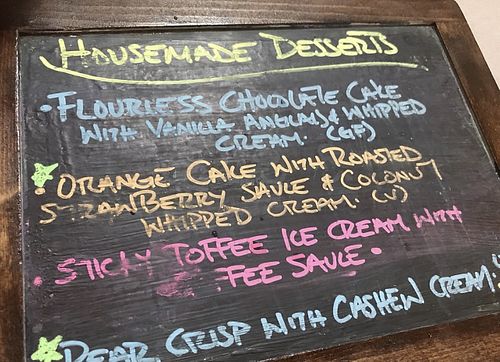 HOUSEMADE DESSERTS
• FLOURLESS CHOCOLATE CAKE
WITH VANILLA ANGLAIS & WHIPPED
CREAM. (GF)
• ORANGE CAKE WITH ROASTED
STRAWBERRY SAUCE & COCONUT
WHIPPED CREAM. (V)
• STICKY TOFFEE ICE CREAM WITH
FEE SAUCE •
PEAR CRISP WITH CASHEW CREAM!